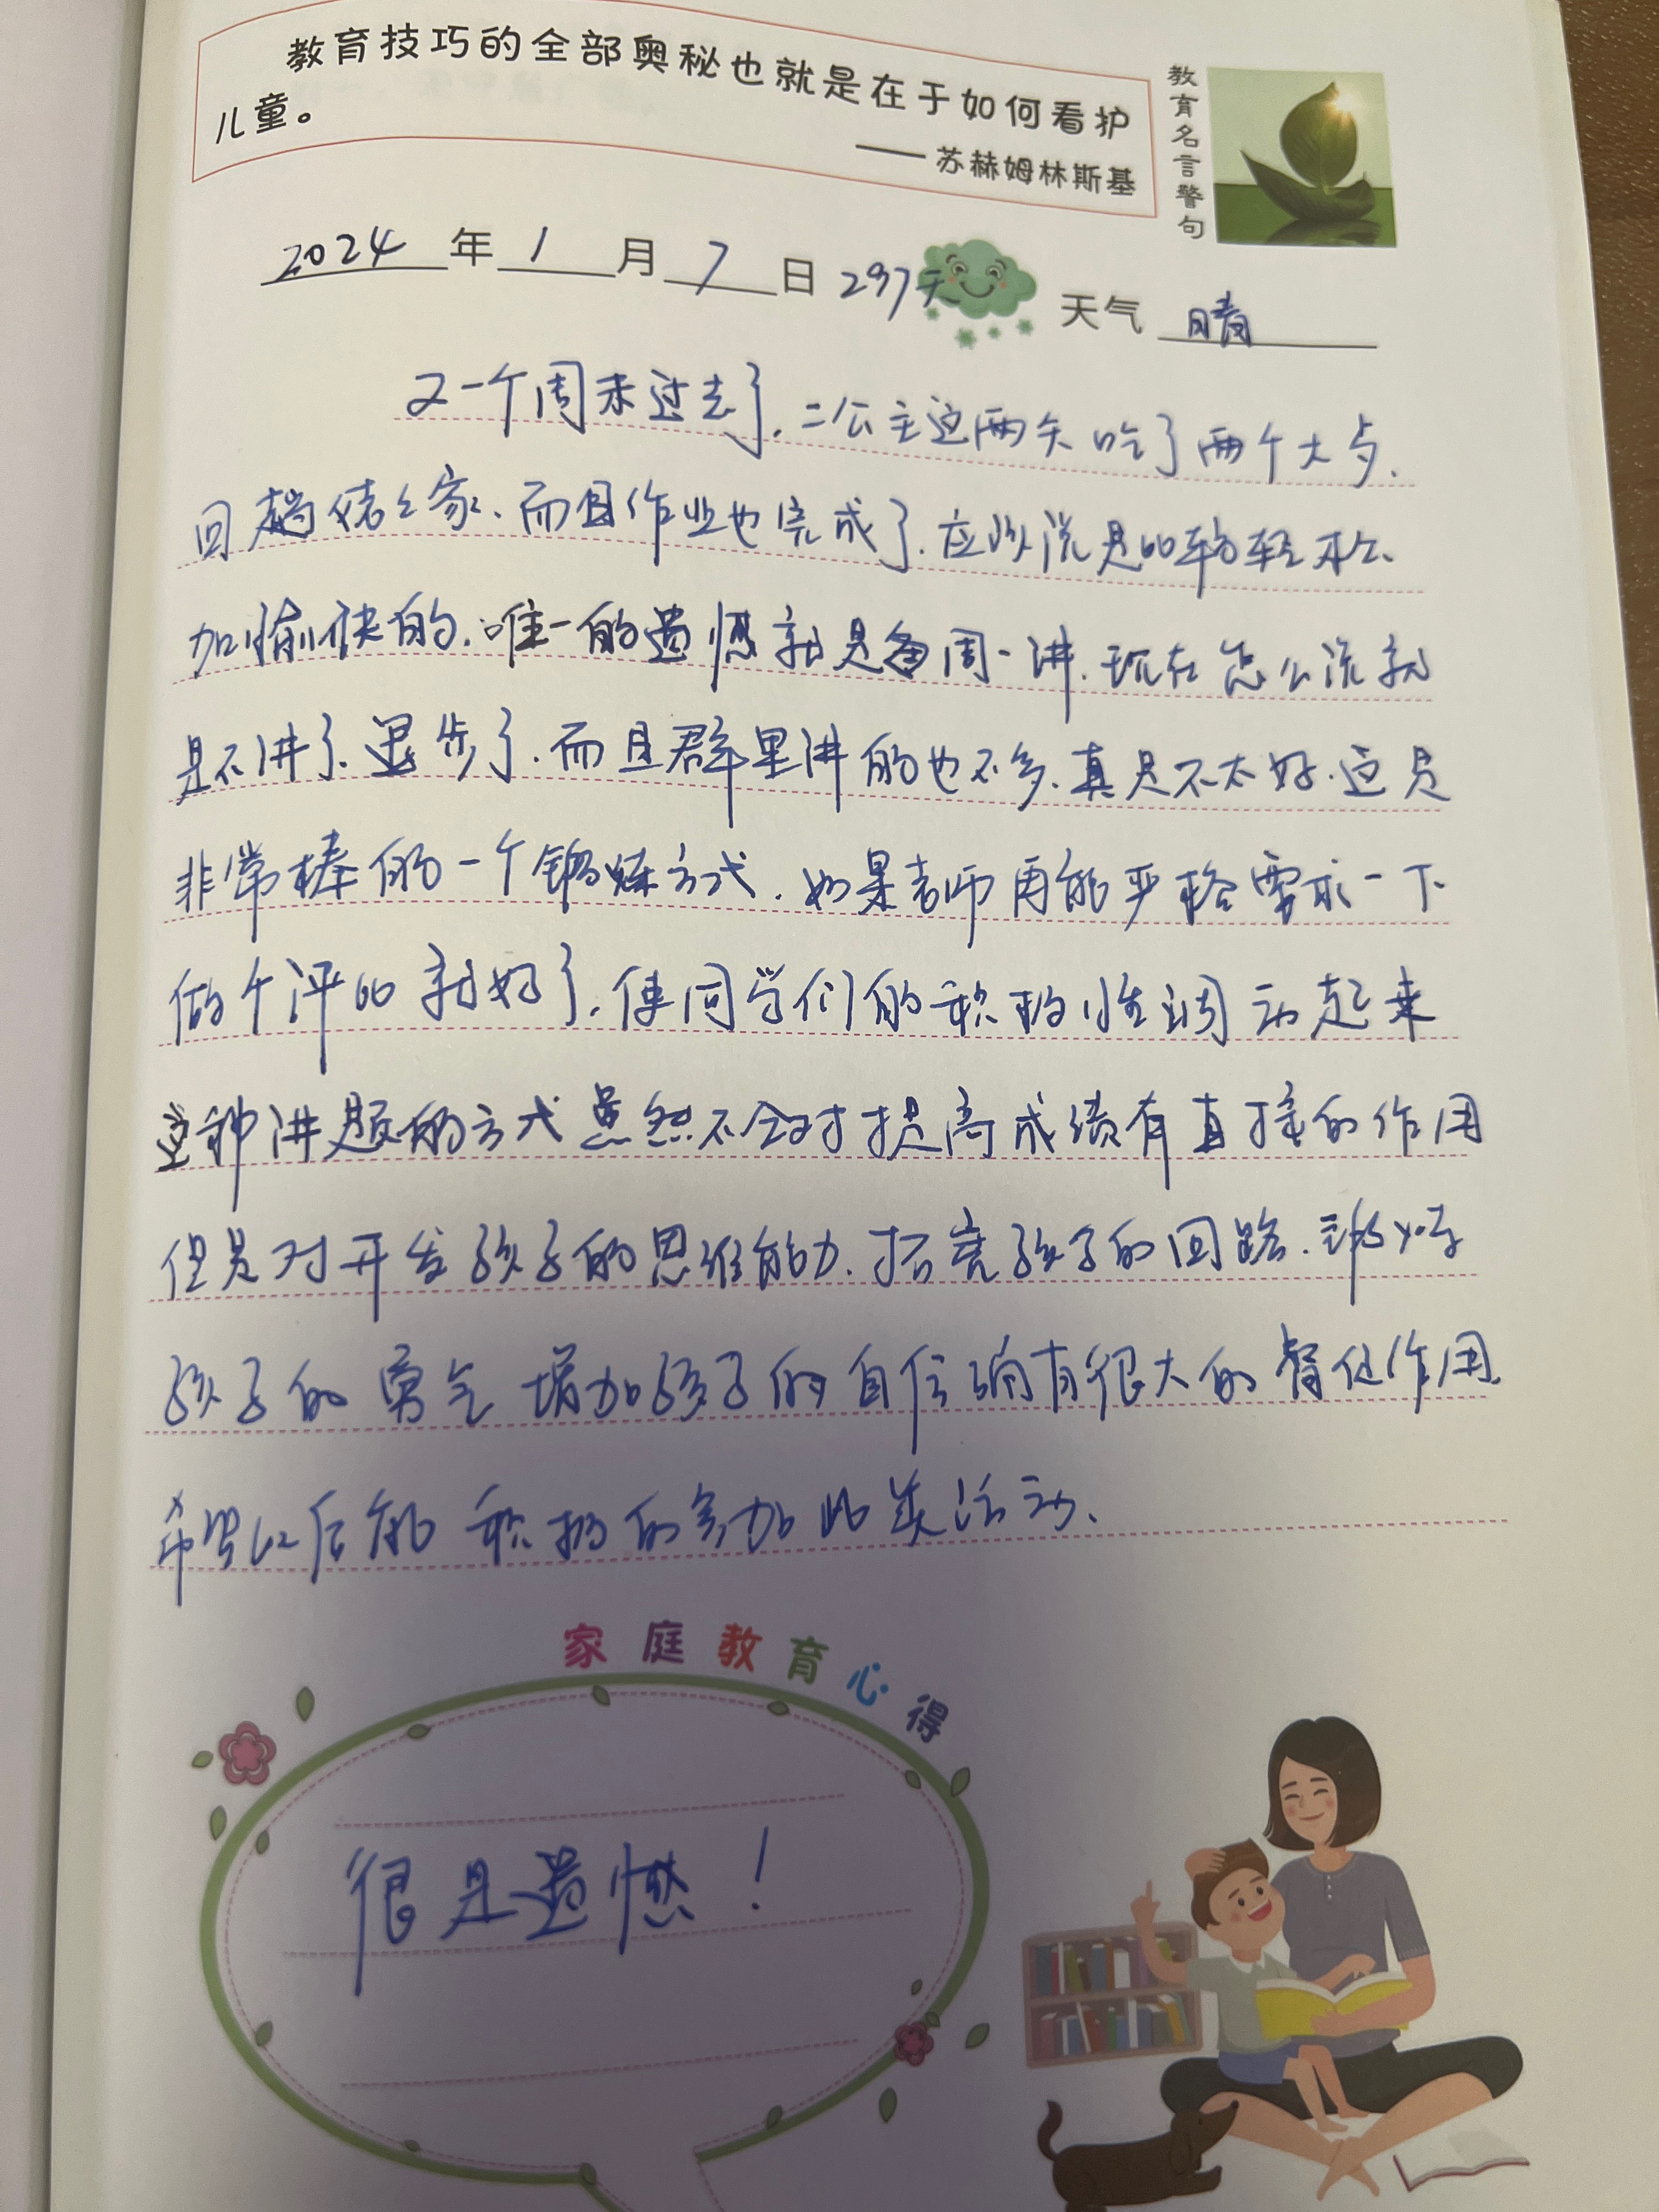 教育技巧的全部奥秘也就是在于如何看护
儿童。
——苏赫姆林斯基
教育名言警句
2024年1月7日 297天 天气 晴
又一个周末过去了.二公主这两天吃了两个大占.
回趟姥姥家.而且作业也完成了.应该说是比较轻松.
加愉快的.唯一的遗憾就是每周一讲.现在怎么说就
是不讲了.退步了.而且群里讲的也不多.真是不太好.这是
非常棒的一个锻炼方式.如果老师再能严格要求一下.
做个评比就好了.使同学们的积极性调动起来
这种讲题的方式虽然不会对提高成绩有直接的作用
但是对开发孩子的思维能力.拓宽孩子的回路.
孩子的勇气增加孩子的自信确有很大的督促作用.
希望以后能积极的参加此类活动.
家庭教育心得
很是遗憾！